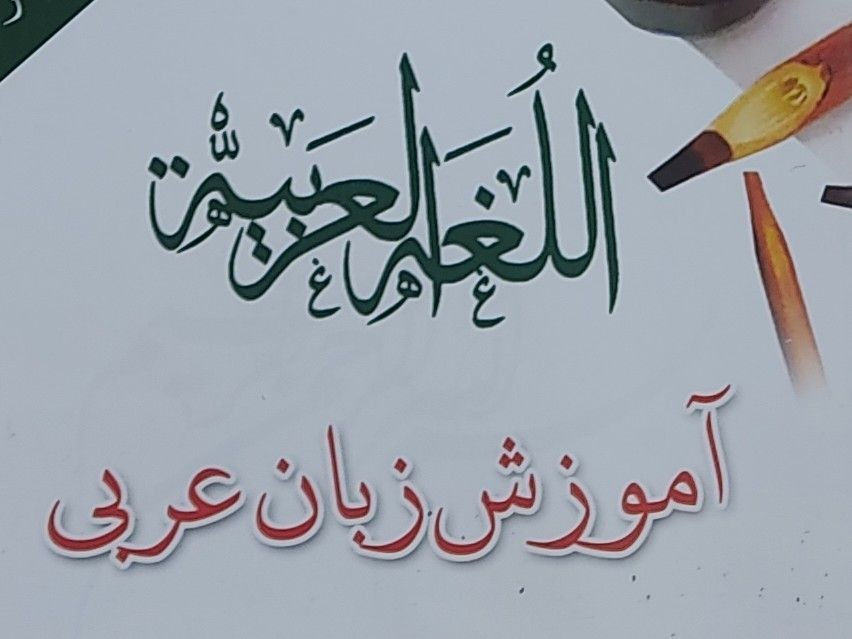 اللُغة العربيّة
آموزش زبان عربی